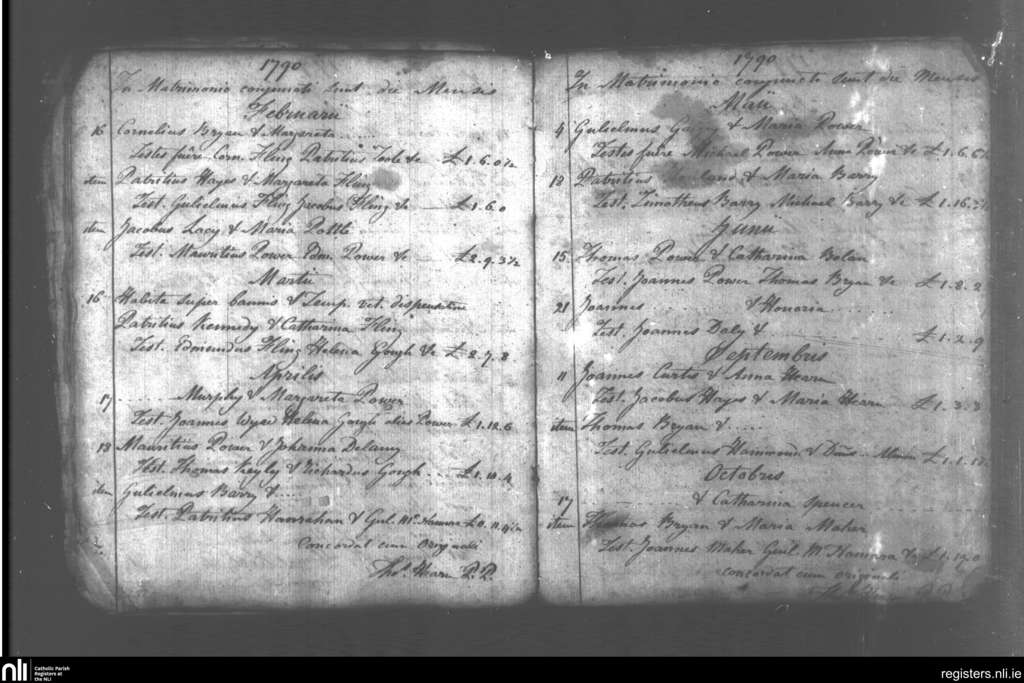 1790
In Matrimonio conjuncti sunt die Mensis
Februarii
16 Cornelius Bryan & Margareta ......
Testes fuere Corn. Fling Patritius Toole &c £1.6.0½
item Patritius Hayes & Margareta Fling
Test. Gulielmus Fling Jacobus Fling &c £1.6.0
item Jacobus Lacy & Maria Pottle
Test. Mauritius Power Edm. Power &c £2.9.3½
Martii
16 Habita super bannis & Temp. vet. dispensatione
Patritius Kennedy & Catharina Fling
Test. Edmundus Fling Helena Gough &c £2.7.8
Aprilis
17 ...... Murphy & Margareta Power
Test. Joannes Wyse Helena Gough alias Power £1.12.6
18 Mauritius Power & Johanna Delany
Test. Thomas Keyly & Richardus Gough .... £1.10.4
item Gulielmus Barry & ....
Test. Patritius Hanrahan & Gul. McNamara £0.11.4½
concordat cum Originali
Thos. Hearn P.P.
1790
In Matrimonio conjuncti sunt die Mensis
Maii
4 Gulielmus & Maria Power
Testes fuere Michael Power Anna Power &c £1.6.6½
18 Patritius & Maria Barry
Test. Timotheus Barry Michael Barry &c £1.16.3½
Junii
15 Thomas Power & Catharina Bolan
Test. Joannes Power Thomas Bryan &c £1.8.2
21 Joannes ...... & Honoria ......
Test. Joannes Daly & ...... £1.2.9
Septembris
11 Joannes Curtis & Anna Hearn
Test. Jacobus Hayes & Maria Hearn £1.3.3
item Thomas Bryan & .....
Test. Gulielmus Hammond & £1.1.
Octobris
17 ...... & Catharina Spencer
item Thomas Bryan & Maria Maher
Test. Joannes Maher Guil. McNamara &c £1.
concordat cum originali
nli Catholic Parish
Registers at
the NLI
registers.nli.ie